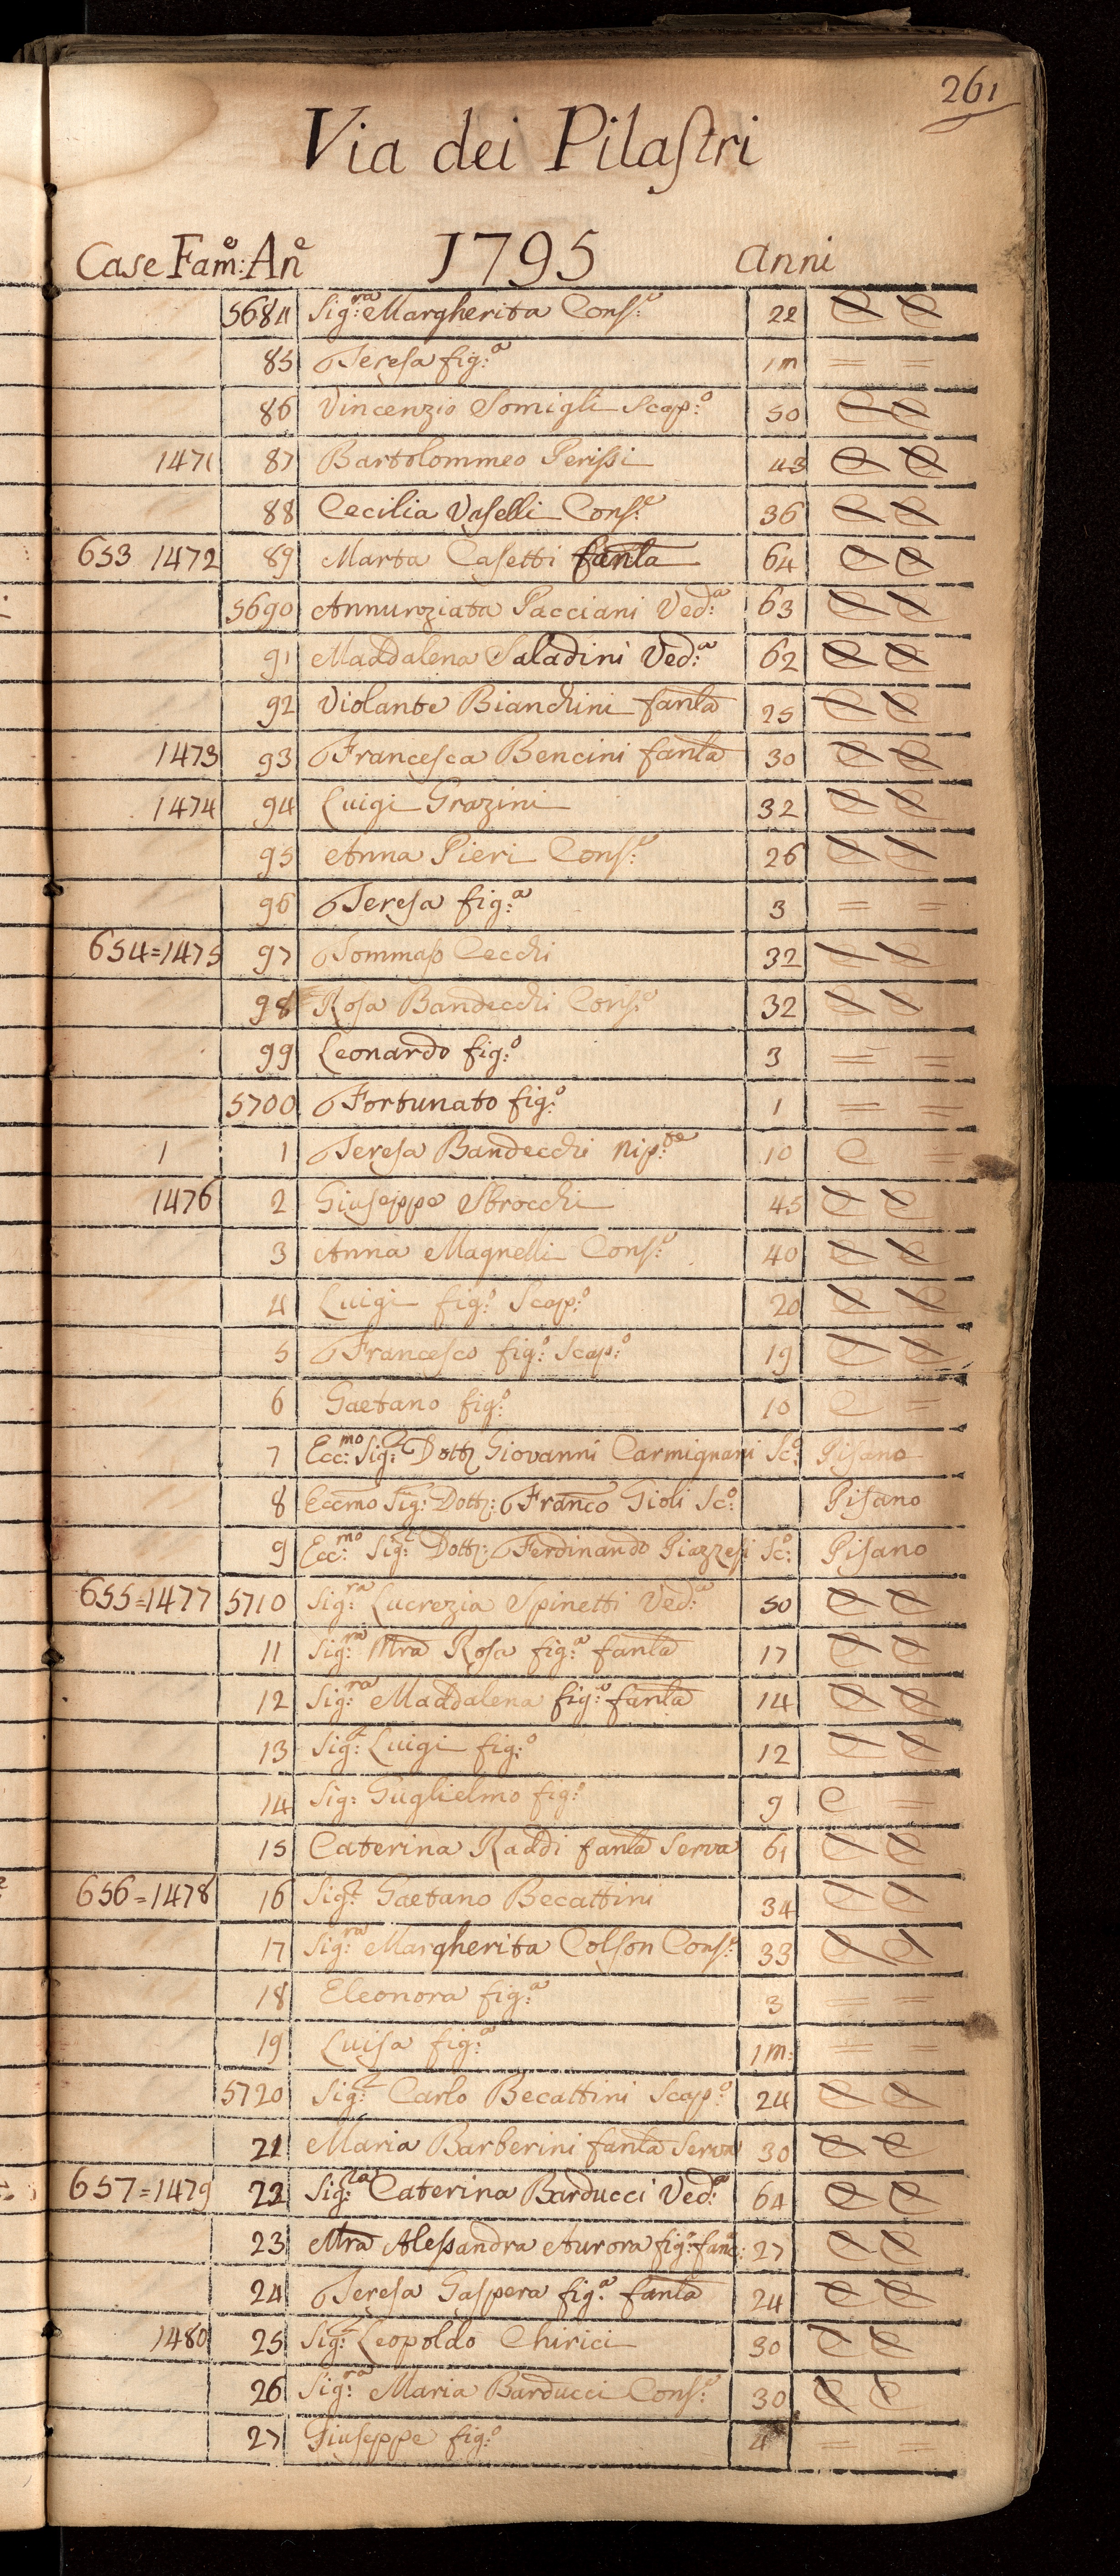 261
Via dei Pilaſtri
Case Fam:e An:e 1795 anni
5684 Sig:ra Margherita Conſ:e 22 C C
85 Teresa fig:a 1m = =
86 Vincenzio Somigli Scap:o 50 C C
1471 87 Bartolommeo Periſsi 43 C C
88 Cecilia Vaſelli Conſ:e 36 C C
653 1472 89 Marta Caſetti fanla 64 C C
5690 Annunziata Pacciani Ved:a 63 C C
91 Maddalena Saladini Ved:a 62 C C
92 Violante Bianchini fanla 25 C C
1473 93 Francesca Bencini fanla 30 C C
1474 94 Luigi Grazini 32 C C
95 Anna Pieri Conſ:e 26 C C
96 Tereſa fig:a 3 = =
654=1475 97 Tommaſo Cecchi 32 C C
98 Roſa Bandecchi Conſ:e 32 C C
99 Leonardo fig:o 3 = =
5700 Fortunato fig:o 1 = =
1 1 Tereſa Bandecchi Nip:te 10 C =
1476 2 Giuſeppe Sbrocchi 45 C C
3 Anna Magnelli Conſ:e 40 C C
4 Luigi fig:o Scap:o 20 C C
5 Franceſco fig:o Scap:o 19 C C
6 Gaetano fig:o 10 C =
7 Ecc:mo Sig:e Dott: Giovanni Carmignani Sc:o Piſano
8 Eccmo Sig: Dott: Franco Gioli Sc:o Piſano
9 Ecc:mo Sig:e Dott: Ferdinando Piazzeſi Sc:o Piſano
655=1477 5710 Sig:ra Lucrezia Spinetti Ved:a 50 C C
11 Sig:ra Mra Roſa fig:a fanla 17 C C
12 Sig:ra Maddalena fig:a fanla 14 C C
13 Sig:e Luigi fig:o 12 C C
14 Sig: Guglielmo fig:o 9 C =
15 Caterina Raddi fanla Serva 61 C C
656=1478 16 Sig:e Gaetano Becattini 34 C C
17 Sig:ra Margherita Colſon Conſ:e 33 C C
18 Eleonora fig:a 3 = =
19 Luiſa fig:a 1m: = =
5720 Sig:e Carlo Becattini Scap:o 24 C C
21 Maria Barberini fanla Serva 30 C C
657=1479 22 Sig:ra Caterina Barducci Ved:a 64 C C
23 Mra Aleſsandra Aurora fig:a fanc: 27 C C
24 Tereſa Gaſpera fig:a fanla 24 C C
1480 25 Sig:e Leopoldo Chirici 30 C C
26 Sig:ra Maria Barducci Conſ:e 30 C C
27 Giuſeppe fig:o 4 = =